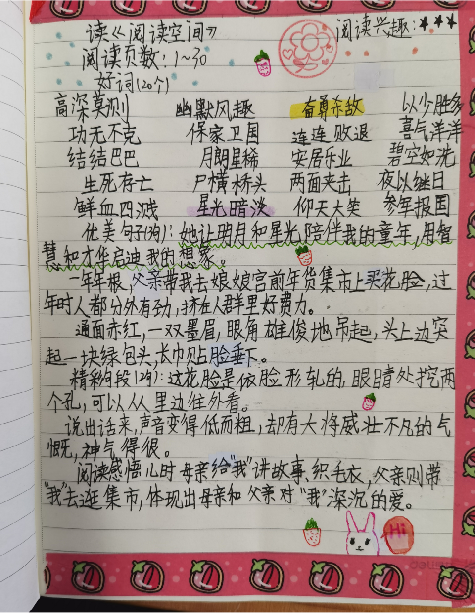 读《阅读空间》 阅读兴趣:★★★
阅读页数:1~30
好词(20个)
高深莫测 幽默风趣 奋勇杀敌 以少胜多
功无不克 保家卫国 连连败退 喜气洋洋
结结巴巴 月朗星稀 安居乐业 碧空如洗
生死存亡 尸横桥头 两面夹击 夜以继日
鲜血四溅 星光暗淡 仰天大笑 参军报国
优美句子(3句):她让明月和星光,陪伴我的童年,用智
慧和才华启迪我的想象。
一年年根,父亲带我去娘娘宫前年货集市上买花脸,过
年时人都分外有劲,挤在人群里好费力。
通面赤红,一双墨眉,眼角雄俊地吊起,头上边突
起一块绿包头,长巾贴脸垂下。
精彩片段(2句):这花脸是依脸形轧的,眼睛处挖两
个孔,可以从里边往外看。
说出话来,声音变得低而粗,却有大将威壮不凡的气
慨,神气得很。
阅读感悟:儿时母亲给"我"讲故事、织毛衣,父亲则带
"我"去逛集市,体现出母亲和父亲对"我"深沉的爱。
Hi